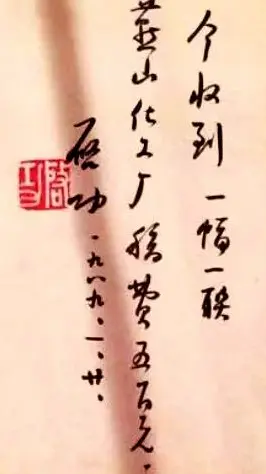 今收到一幅一联
燕山化工厂稿费五百元.
启功 一九八九.一.廿.
启功